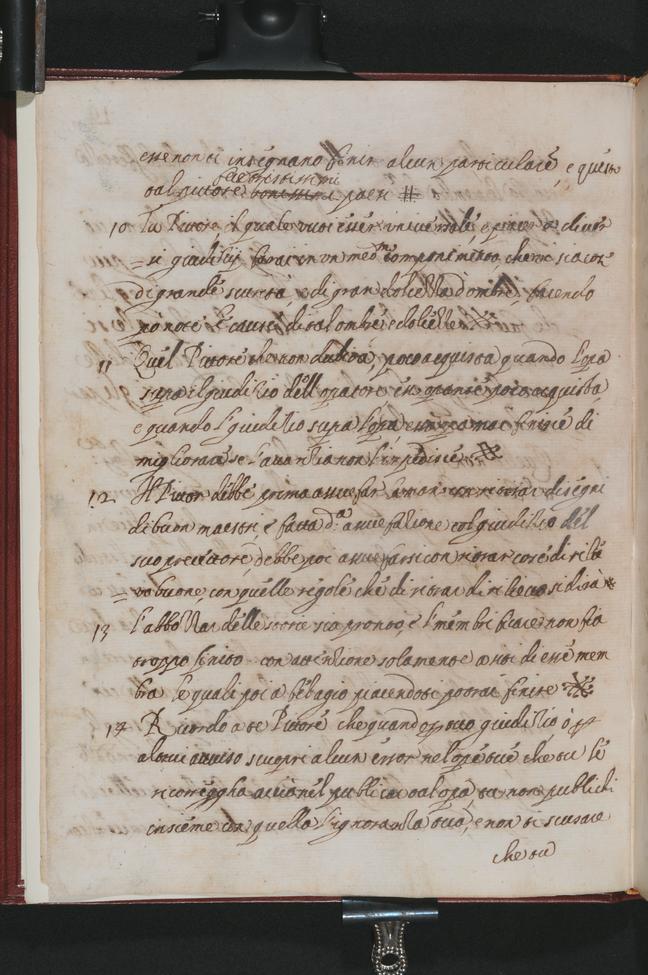 esse non ti insegnano finir alcun particulare, e questo
tal pittore faceva tristissimi paesi #
10 Tu Pittore, il quale vuoi esser universale, e piacer a diver
=si giuditij farai in un med.mo componimento che vi sia cose
di grande scurità, e di gran dolcezza d'ombre, facendo
però note le cause di tal ombre e dolcezze
11 Quel Pittore che non dubita, poco acquista quando l'opa
supa il giuditio dell'opatore esso opante poco acquista
e quando il giuditio supa l'opa essa opa mai finisce di
migliorare se l'avaritia non l'impedisce #
12 Il Pittor debbe prima assuefar la mano con ritrar disegni
di buon maestri, e fatta d.a assuefatione col giuditio del
suo precettore, debbe poi assuefarsi con ritrar cose di rile
=vo buone, con quelle regole che di ritrar di rilievo si dirà #
13 L'abbozzar delle storie sia pronto, e il membrificare non sia
troppo finito contento solamente a siti di esse mem
bra le quali poi a bell'agio piacendoti potrai finire #
14 Ricordo a te Pittore che quando p tuo giuditio ò p
altrui avviso scuopri alcun error nel opere tue che tu le
ricorregghi acciò nel publicar tal opa tu non publichi
insieme con quella l'ignoranza tua, e non ti scusare
che tu